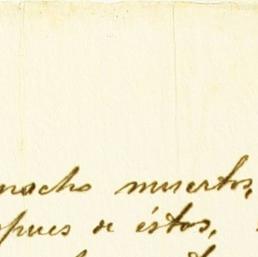 macho muertos,
spues de éstos,